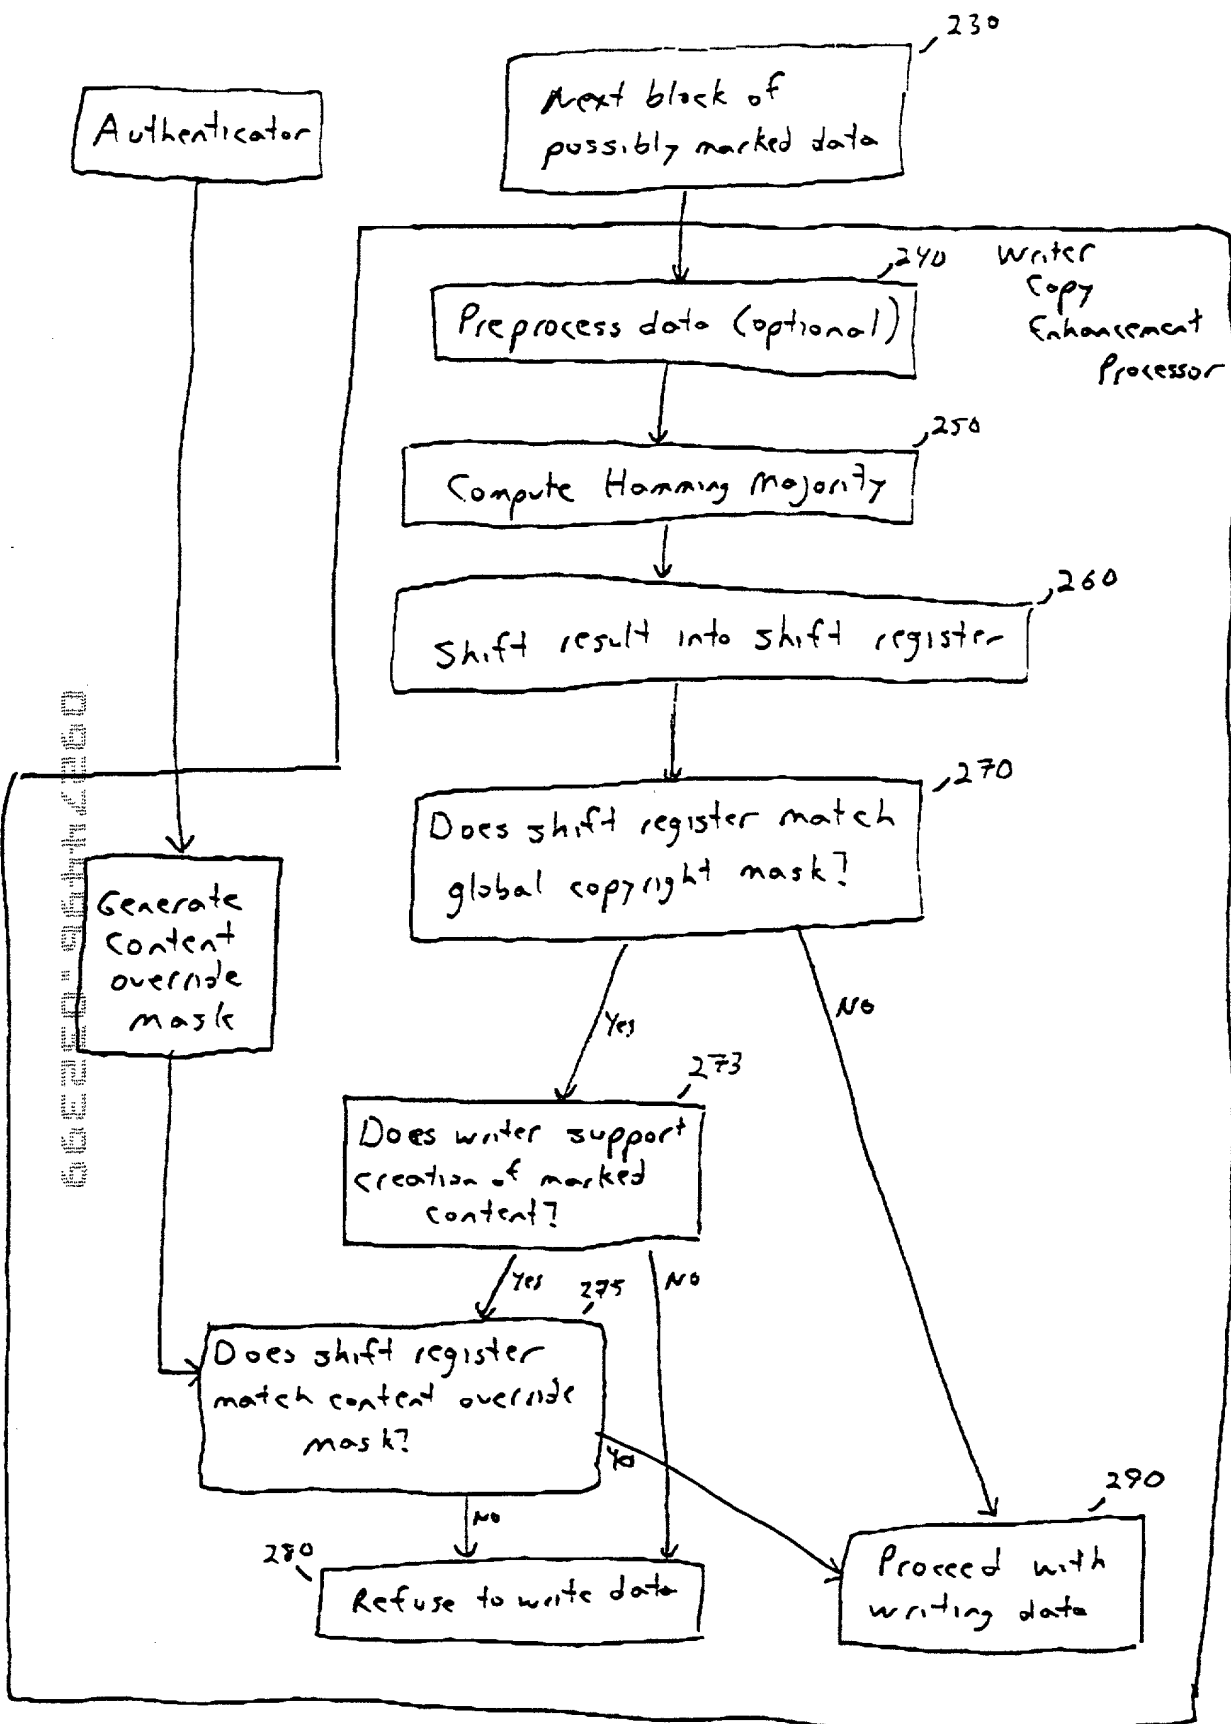 230
Next block of
possibly marked data
Authenticator
240
Writer
Copy
Enhancement
Processor
Preprocess data (optional)
250
Compute Hamming Majority
260
Shift result into shift register
270
Does shift register match
global copyright mask?
Generate
content
override
mask
Yes
No
273
Does writer support
creation of marked
content?
Yes
No
275
Does shift register
match content override
mask?
No
280
Refuse to write data
290
Proceed with
writing data